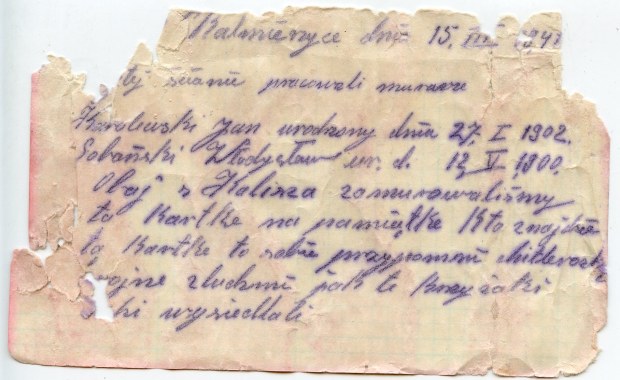 Kalmierzyce dnia 15. III 194
tej ścianie pracowali murarze
Karolewski Jan urodzony dnia 27. I 1902.
Sobański Władysław ur. d. 12, V 1900.
Obaj z Kalisza zamurowaliśmy
tą Kartke na pamiątke Kto znajdzie
tą Kartke to sobie przypomni
wojne z ludzmi jak te krzyżaki
wysiedlali